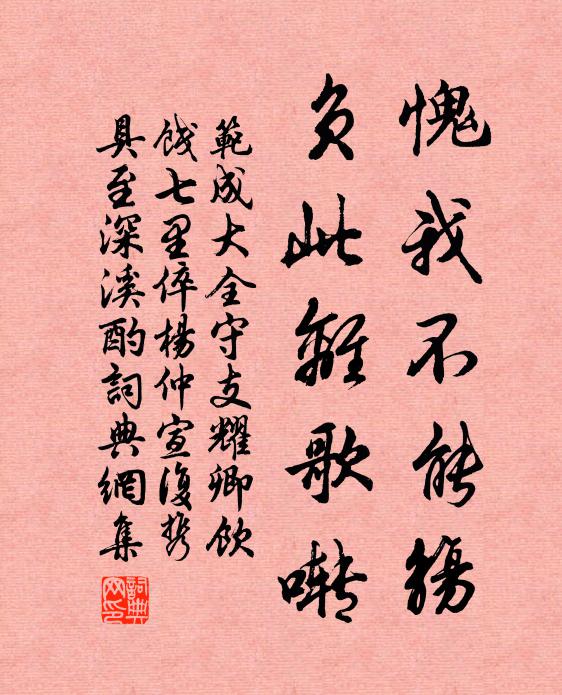 愧我不能觴
負此離歌囀
範成大全守支耀卿飲
餞七里倅楊仲宣復攜
具至深溪酌詞典網集
詞典
网印